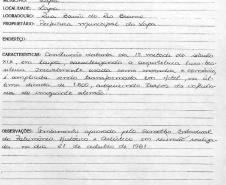 LOCALIDADE: Lapa
LOGRADOURO: Rua Barão do Rio Branco
PROPRIETÁRIO: Prefeitura Municipal da Lapa
ENDEREÇO:
CARACTERÍSTICAS: Construção datada da 1ª metade do século
XIX, em taipa, caracterizando a arquitetura luso-bra-
sileira. Inicialmente usada como moradia e comércio,
é ampliada, sendo transformada em
tima década de 1800, adquirindo traços da influên-
cia de imigrante alemão.
OBSERVAÇÕES: Tombamento aprovado pelo Conselho Estadual
do Patrimônio Histórico e Artístico em reunião realiza-
da no dia 21 de outubro de 1981.